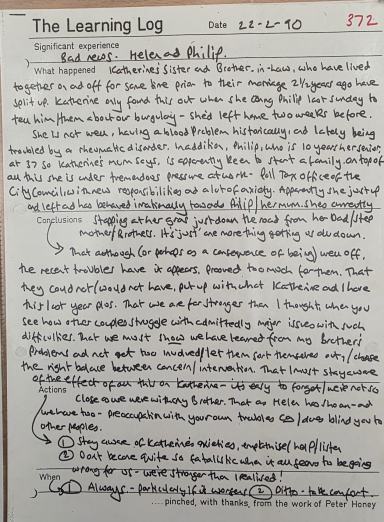 The Learning Log Date 22-2-90 372
Significant experience
Bad news - Helen and Philip.
What happened Katherine's Sister and Brother-in-law, who have lived
together on and off for some time prior to their marriage 2½ years ago have
split up. Katherine only found this out when she rang Philip last Sunday to
tell him/them about our burglary - she'd left home two weeks before.
She is not well, having a blood problem historically, and lately being
troubled by a rheumatic disorder. In addition, Philip, who is 10 years her senior,
at 37 so Katherine's mum says, is apparently keen to start a family. On top of
all this she is under tremendous pressure at work - Poll Tax office of the
City Council with new responsibilities and a lot of anxiety. Apparently she just up
and left and has behaved irrationally towards Philip/her mum. She's currently
Conclusions stopping at her just down the road from her Dad/step
mother/Brothers. It's just one more thing getting us down.
That although (or perhaps as a consequence of being) well off,
the recent troubles have it appears, proved too much for them. That
they could not/would not, put up with what Katherine and I have
this/last year plus. That we are far stronger than I thought, when you
see how other couples struggle with admittedly major issues with such
difficulties. That we must show we have learned from my Brother's
Problems and not get too involved/let them sort themselves out,/choose
the right balance between concern/intervention. That I must stay aware
of the effect of all this on Katherine - it's easy to forget/we're not so
Actions close as we were with my Brother. That as Helen has shown - and
we have too - preoccupation with your own troubles can/does blind you to
other peoples.
① Stay aware of Katherine's anxieties, empathise/help/listen
② Don't become quite so fatalistic when it all seems to be going
wrong for us - we're stronger than I realised!
When ① Always - particularly if it worsens ② Ditto - take comfort.
....pinched, with thanks, from the work of Peter Honey